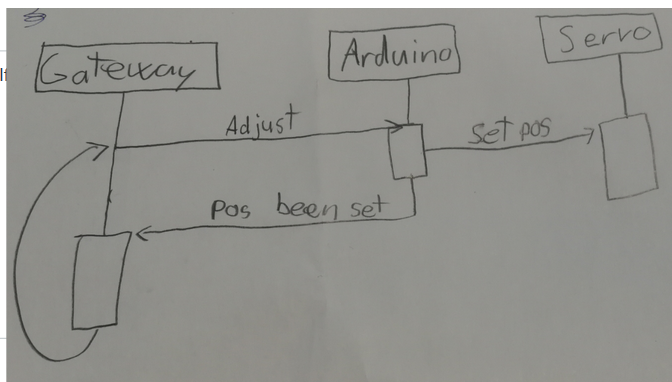 Gateway
Arduino
Servo
Adjust
Set pos
Pos been set